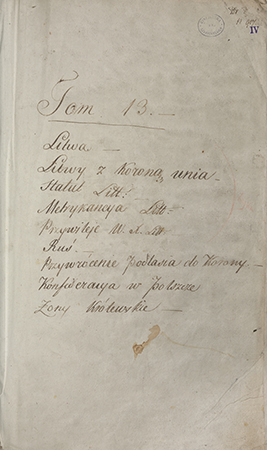 IV
Tom 13. —
Litwa —
Litwy z Koroną unia —
Statut Litt:
Metrykancya Litt:
Przywileje W. X. Litt
Ruś. —
Przywrócenie Podlasia do Korony —
Konfederacya w Polszcze
Żony Królewskie —